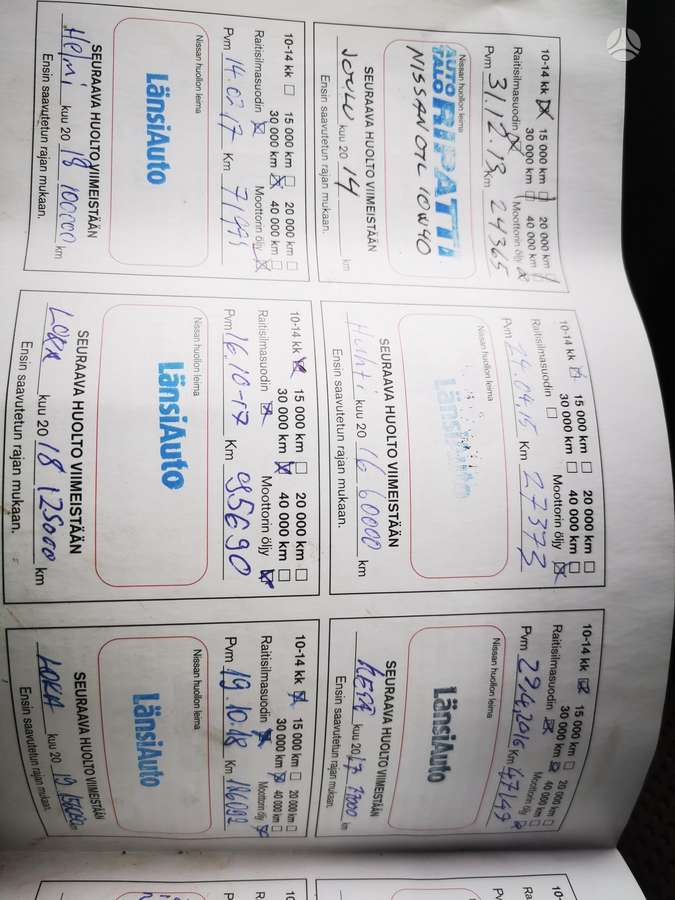 10-14 kk ☒ 15 000 km ☐ 20 000 km
30 000 km 40 000 km
Raitisilmasuodin ☒ Moottorin öljy
Pvm 31.12.13 Km 24365
Nissan huollon leima
AUTO TALO RIPATTI
NISSAN OIL 10W40
SEURAAVA HUOLTO VIIMEISTÄÄN
JOULU kuu 20 14 km
Ensin saavutetun rajan mukaan.
10-14 kk ☒ 15 000 km ☐ 20 000 km ☐
30 000 km ☐ 40 000 km ☐
Raitisilmasuodin ☐ Moottorin öljy ☒
Pvm 24.04.15 Km 27373
Nissan huollon leima
LänsiAuto
SEURAAVA HUOLTO VIIMEISTÄÄN
Huhti kuu 20 16 60000 km
Ensin saavutetun rajan mukaan.
10-14 kk ☒ 15 000 km ☐ 20 000 km ☐
30 000 km ☒ 40 000 km ☐
Raitisilmasuodin ☒ Moottorin öljy ☒
Pvm 29.4.2016 Km 47147
Nissan huollon leima
LänsiAuto
SEURAAVA HUOLTO VIIMEISTÄÄN
kuu 20 17 77000 km
Ensin saavutetun rajan mukaan.
10-14 kk ☐ 15 000 km ☐ 20 000 km ☐
30 000 km ☒ 40 000 km ☐
Raitisilmasuodin ☒ Moottorin öljy ☒
Pvm 14.02.17 Km
Nissan huollon leima
LänsiAuto
SEURAAVA HUOLTO VIIMEISTÄÄN
Helmi kuu 20 18 100000 km
Ensin saavutetun rajan mukaan.
10-14 kk ☒ 15 000 km ☐ 20 000 km ☐
30 000 km ☒ 40 000 km ☐
Raitisilmasuodin ☒ Moottorin öljy ☒
Pvm 16.10-17 Km 95690
Nissan huollon leima
LänsiAuto
SEURAAVA HUOLTO VIIMEISTÄÄN
LOKA kuu 20 18 125000 km
Ensin saavutetun rajan mukaan.
10-14 kk ☒ 15 000 km ☐ 20 000 km ☐
30 000 km ☒ 40 000 km ☐
Raitisilmasuodin ☒ Moottorin öljy ☒
Pvm 19.10.18 Km
Nissan huollon leima
LänsiAuto
SEURAAVA HUOLTO VIIMEISTÄÄN
LOKA kuu 20 19 150000 km
Ensin saavutetun rajan mukaan.